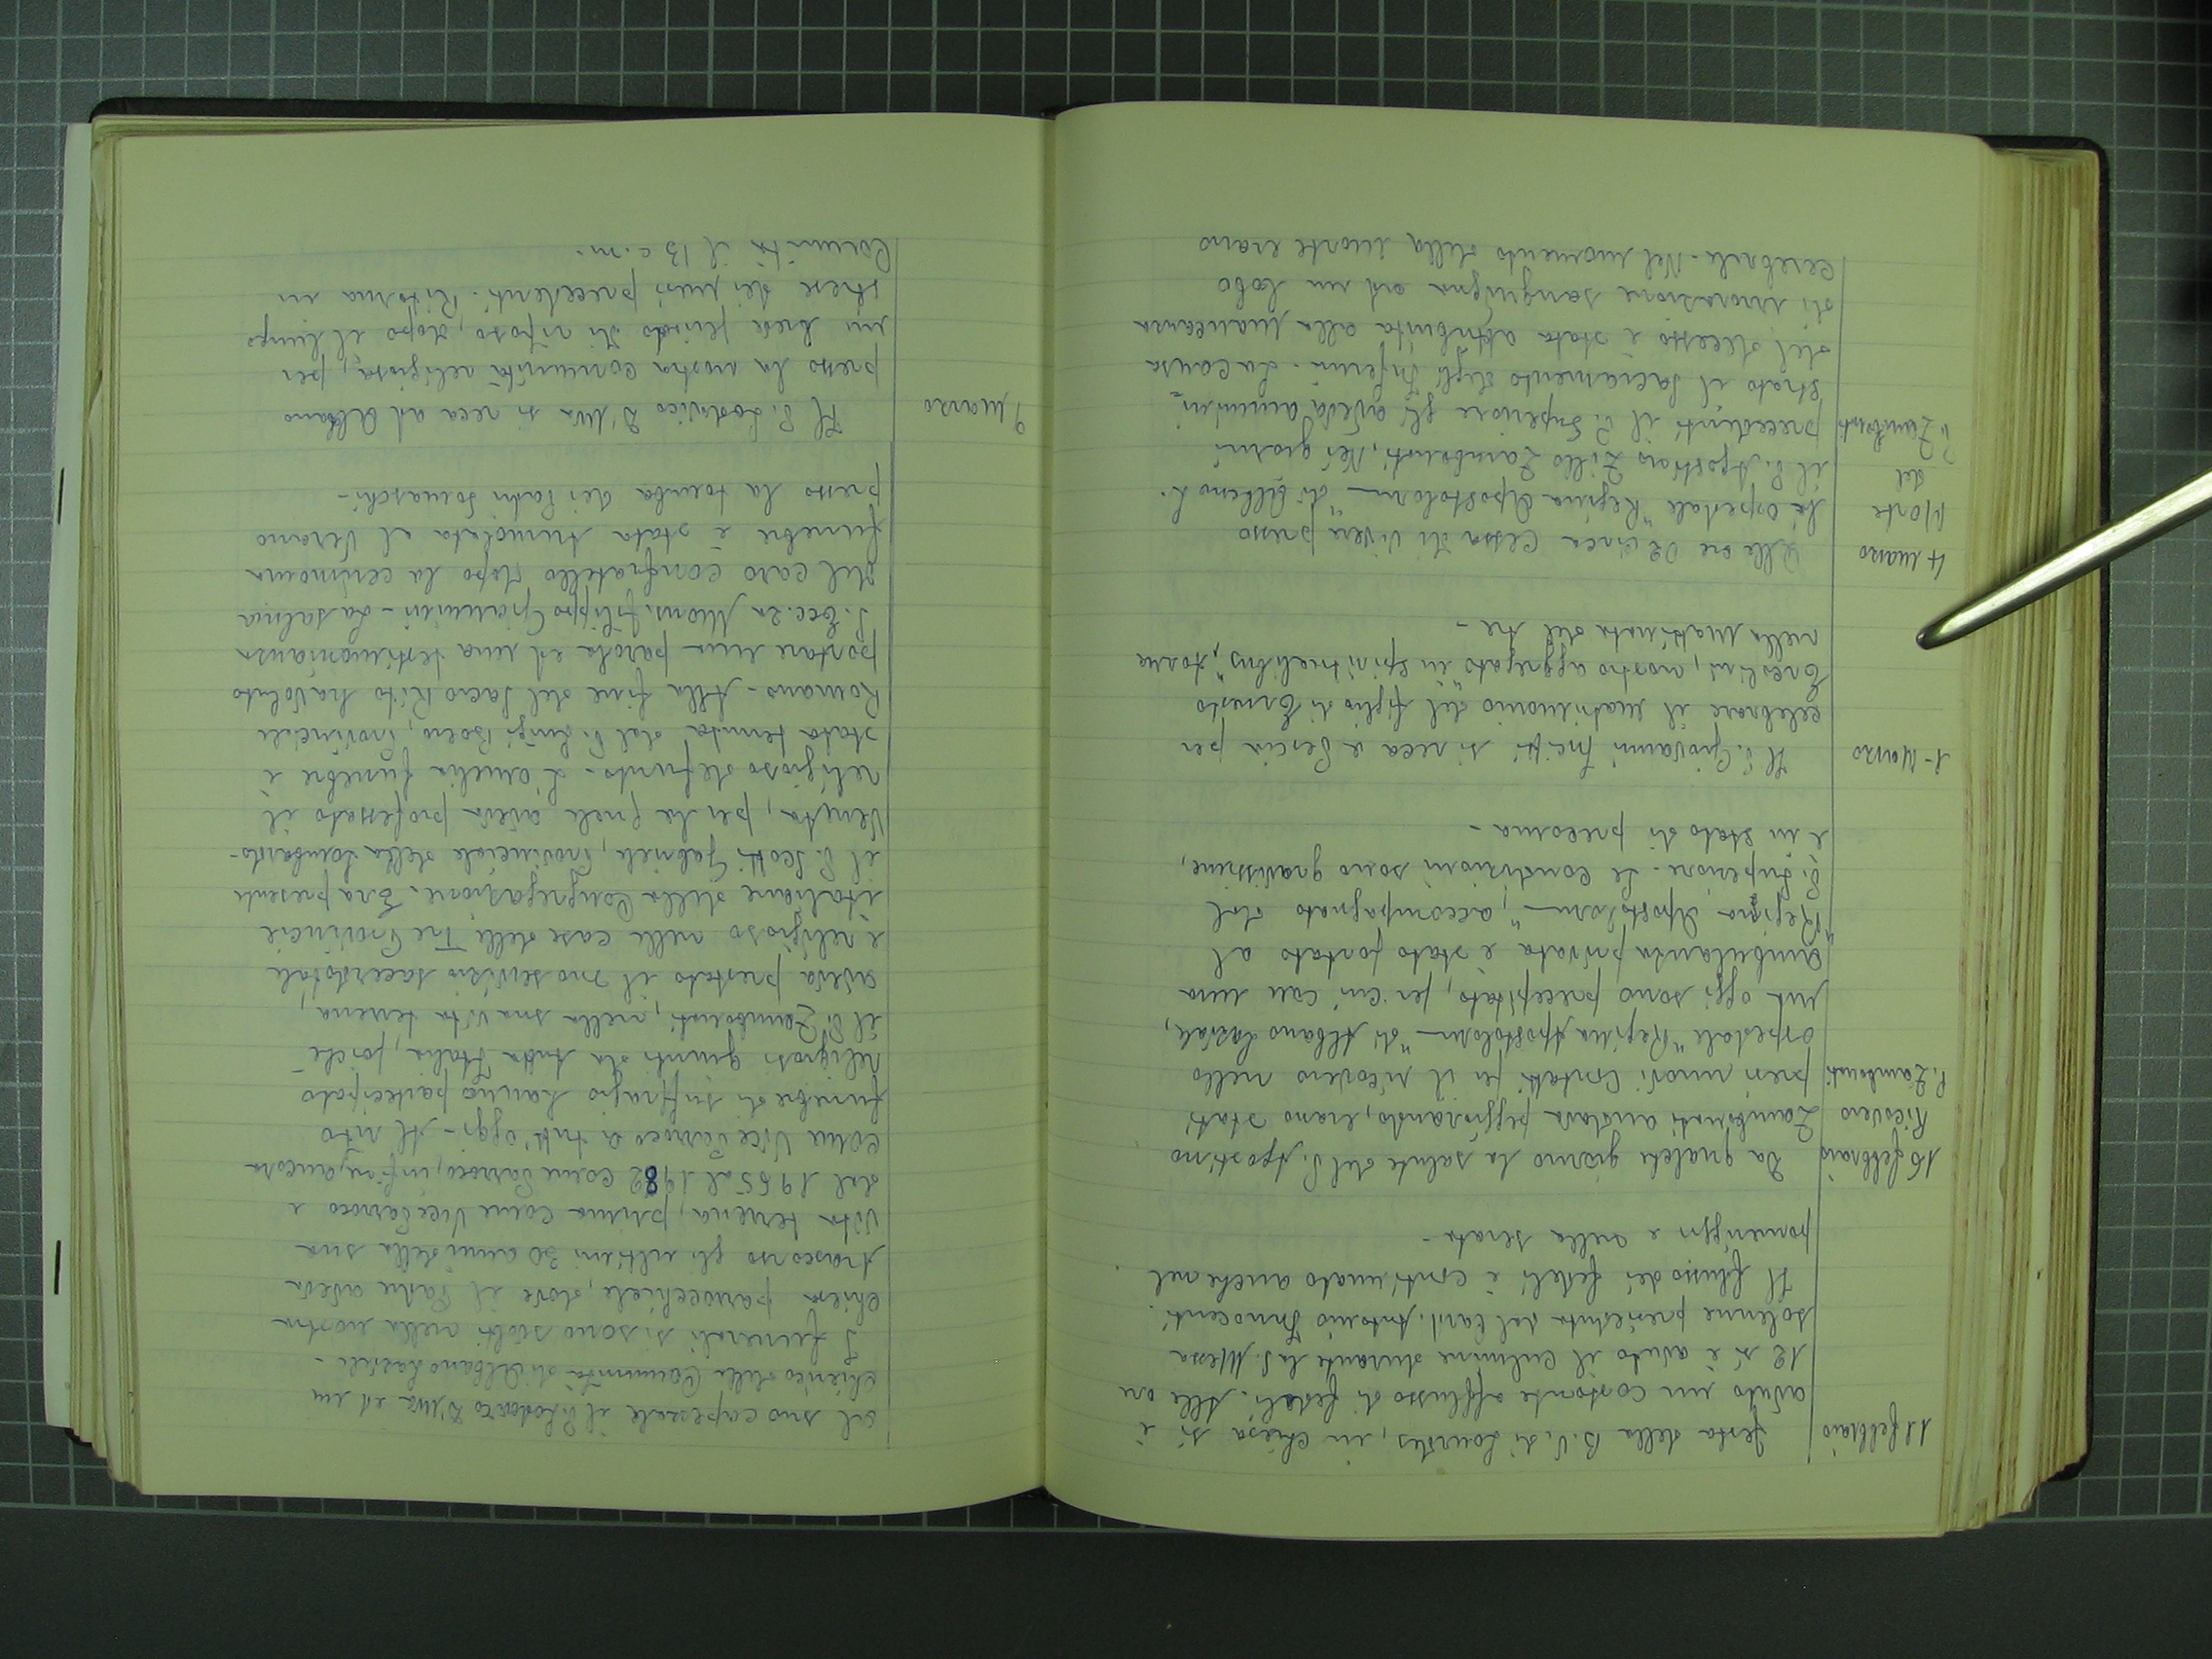 11 febbraio
festa della B.V. di Lourdes, in chiesa si è
avuto un costante afflusso di fedeli. Alle ore
12 si è avuto il culmine durante la S. Messa
solenne presieduta dal Card. Antonio Innocenti.
Il flusso dei fedeli è continuato anche nel
pomeriggio e nella serata -
16 febbraio
Ricovero
P. Zambonati
Da qualche giorno la salute del P. Agostino
Zambonati andava peggiorando, erano stati
presi nuovi contatti per il ricovero nello
ospedale "Regina Apostolorum" di Albano Laziale,
ma oggi sono precipitate, per cui con una
ambulanza privata è stato portato al
"Regina Apostolorum", accompagnato dal
P. Superiore. Le condizioni sono gravissime,
e in stato di precoma -
1 - Marzo
Il P. Giovanni si reca a Pescia per
celebrare il matrimonio del figlio di Ernesto
nostro aggregato "in spiritualibus", torna
nella mattinata del tre -
4 marzo
Morte
del
P. Zambonati
Alle ore 02 circa cessa di vivere presso
lo ospedale "Regina Apostolorum" di Albano L.
il P. Agostino Zambonati. Nei giorni
precedenti il P. Superiore gli aveva ammini
strato il Sacramento degli Infermi. La causa
del decesso è stata attribuita alla mancanza
di irrorazione sanguigna ad un lobo
cerebrale. Nel momento della morte erano
al suo capezzale il P. Lodovico D'Uva ed un
chierico della Comunità di Albano Laziale -
I funerali si sono svolti nella nostra
chiesa parrocchiale, dove il Padre aveva
trascorso gli ultimi 30 anni della sua
vita terrena, prima come Vice Parroco e
dal 1965 al 1982 come Parroco, infine, ancora
come Vice Parroco a tutt'oggi - Al rito
funebre di suffragio hanno partecipato
religiosi giunti da tutta Italia, poiché
il P. Zambonati, nella sua vita terrena,
aveva prestato il suo servizio sacerdotale
e religioso nelle case delle Tre Provincie
italiane della Congregazione. Era presente
il P. Scotti Gabriele, Provinciale della Lombardo-
Veneta, per la quale aveva professato il
religioso defunto - L'omelia funebre è
stata tenuta dal P. Luigi Provinciale
Romano - Alla fine del Sacro Rito ha voluto
portare una parola ed una testimonianza
S. Ecc.za Mons. Filippo Giannini - La salma
del caro confratello dopo la cerimonia
funebre è stata tumulata al Verano
presso la tomba dei Padri Somaschi -
9 Marzo
Il P. Lodovico D'Uva si reca ad Albano
presso la nostra comunità religiosa, per
un breve periodo di riposo, dopo il lungo
stress dei mesi precedenti. Ritorna in
Comunità il 13 c.m.